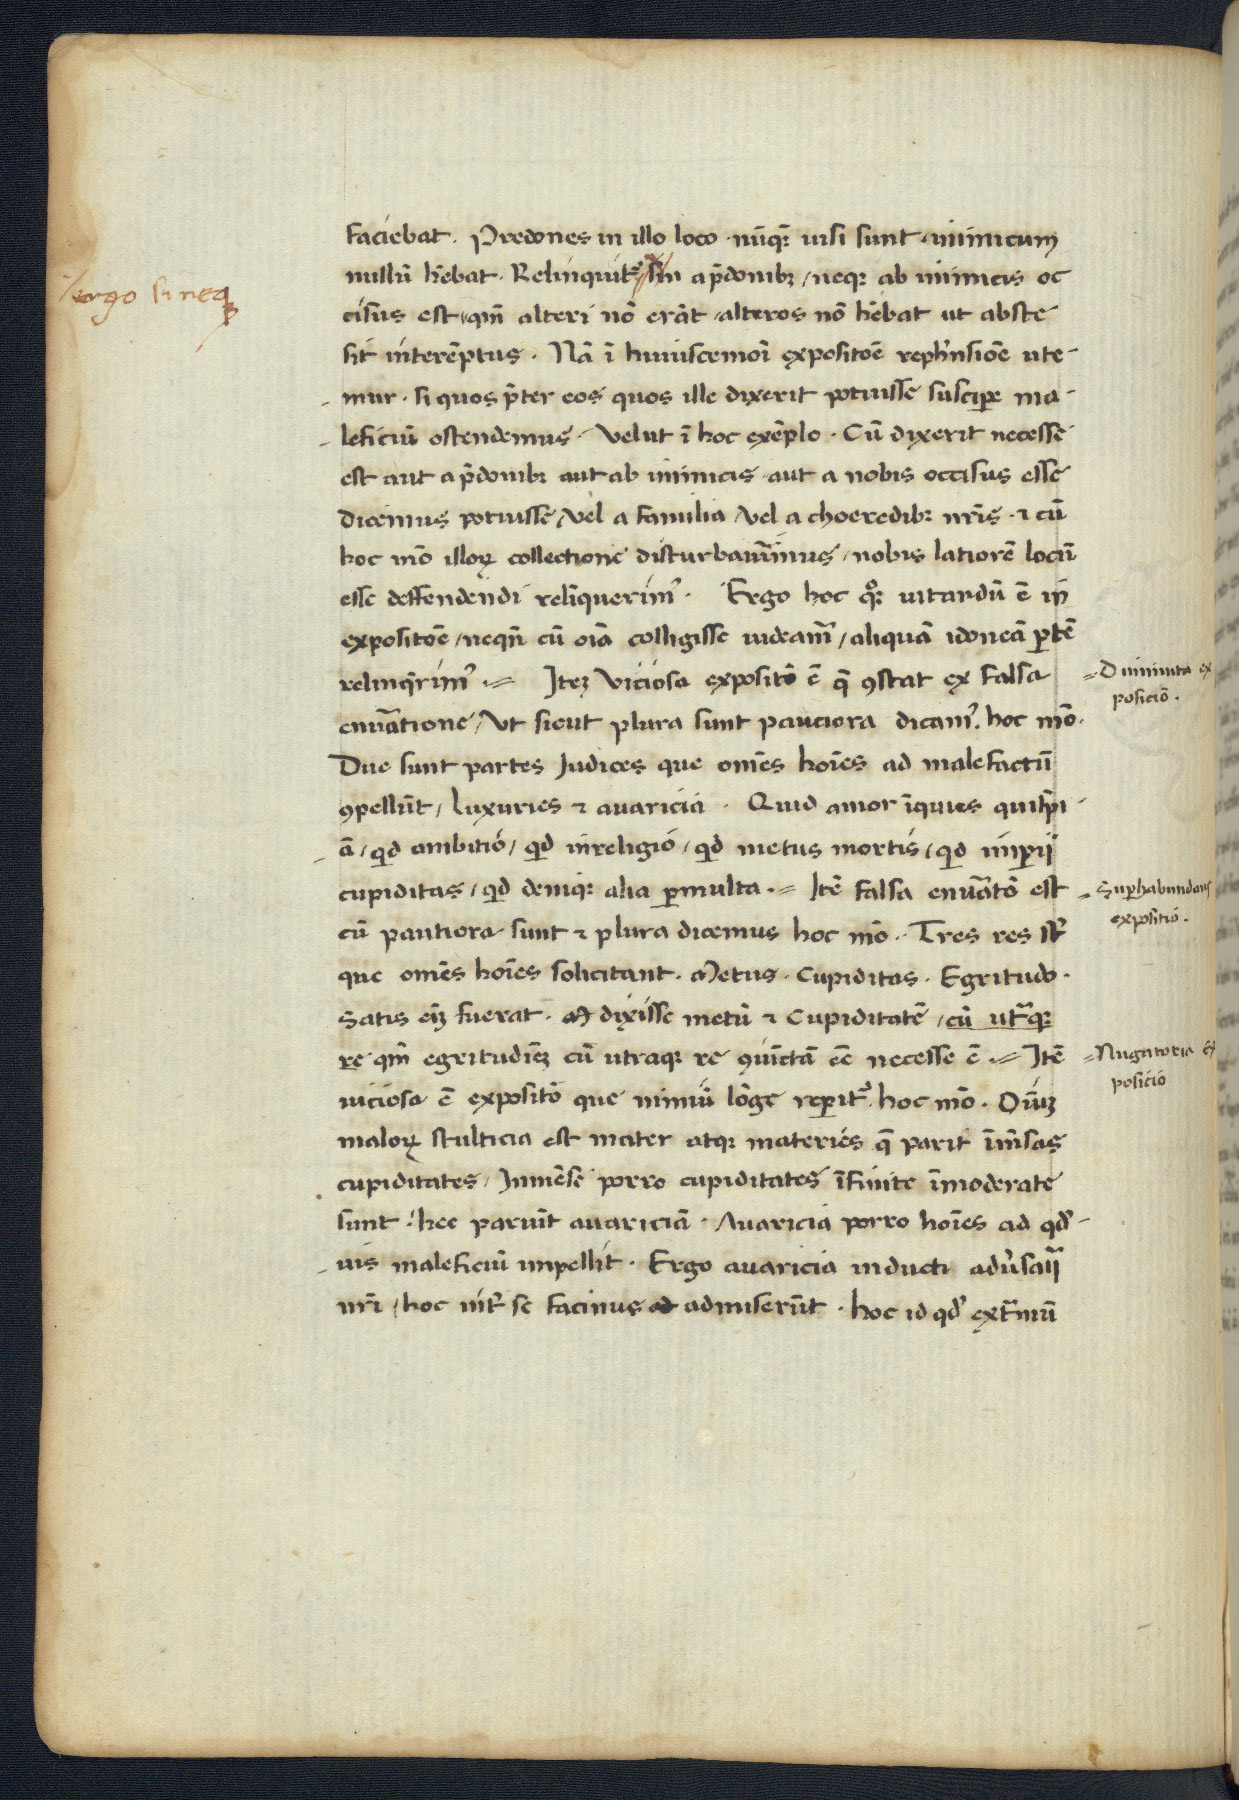 faciebat. Predones in illo loco nūqꝫ uisi sunt inimicum
nullū hēbat. Relinquit᷑ sin a p̄donibꝫ / neqꝫ ab inimicis oc
/ergo si neqꝫ
cisus est / qm̄ alteri nō erāt / alteros nō hēbat ut abste
sit interēptus. Nā ī huiuscemoī expositōe rephn̄siōe ute-
mur. si quos p̄ter eos quos ille dixerit potuisse suscipe ma-
leficiū ostendemus. Velut ī hoc exēplo. Cū dixerit necesse
est aut a p̄donibꝫ aut ab inimicis aut a nobis occisus esse
dicemus potuisse / vel a familia / vel a choeredibꝫ nr̄is. ⁊ cū
hoc mō illoꝝ collectione disturbauīmus / nobis latiorē locū
esse deffendendi reliquerim᷒. Ergo hoc qꝫ uitandū ē in
expositōe / neqn̄ cū oīa collegisse uideam᷒ / aliquā idoneā ꝑtē
relinq̄rim᷒ .= Iteꝫ Viciosa expositō ē q̄ ꝯstat ex falsa
=Diminuta ex
posiciō.
enūatione / Vt sicut plura sunt pauciora dicam᷒. hoc mō.
Due sunt partes Iudices que omēs hoīes ad malefactū
ꝯpellūt / luxuries ⁊ auaricia. Quid amor īquies quispi-
ā / qd ambitio / qd inreligio / qd metus mortis / qd imꝑij
cupiditas / qd deniqꝫ alia ꝑmulta .= Itē falsa enūatō est
=Suꝑhabundans
expositio.
cū pautiora sunt ⁊ plura dicemus hoc mō. Tres res st᷑
que omēs hoīes solicitant. Metus. Cupiditas. Egritudo.
Satis eīꝫ fuerat. dixisse metū ⁊ Cupiditatē / cū utāqꝫ
re qm̄ egritudinēꝫ cū utraqꝫ re ꝯiūctā eē necesse ē .= Itē
=Nugatoria ex
posicio
uiciosa ē expositō que nimiū lōge reꝑit᷑. hoc mō. Oīuꝫ
maloꝝ stulticia est mater atqꝫ materies q̄ parit īmēsas
cupiditates / Inmēse porro cupiditates īfinite īmoderate
sunt. hec pariūt auariciā. Auaricia porro hoīes ad qd-
uis maleficiū impellit. Ergo auaricia inducti adu̾saij
nr̄i / hoc īt᷑ se facinus admiserūt. hoc id qd᷒ ext̄mū